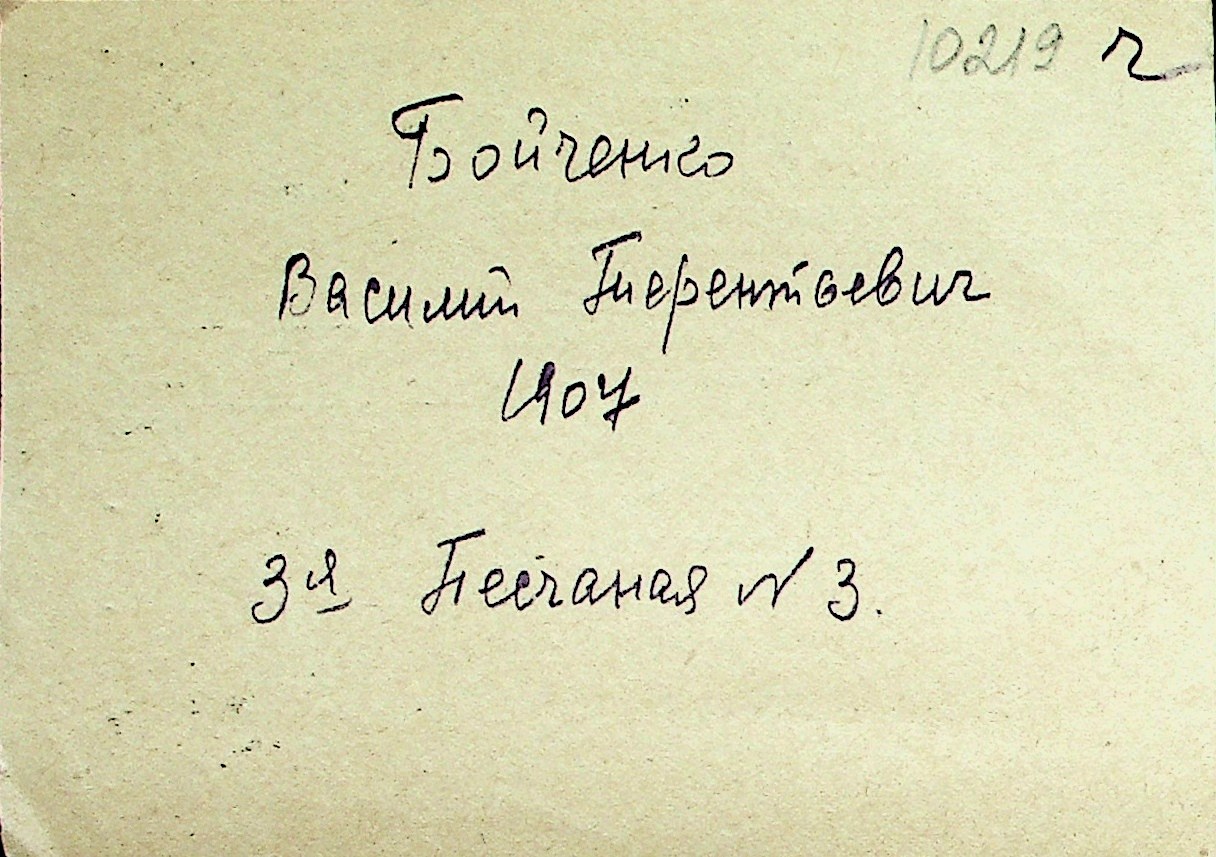 10219 г
Бойченко
Василий Терентьевич
1907
3я Песчаная N 3.